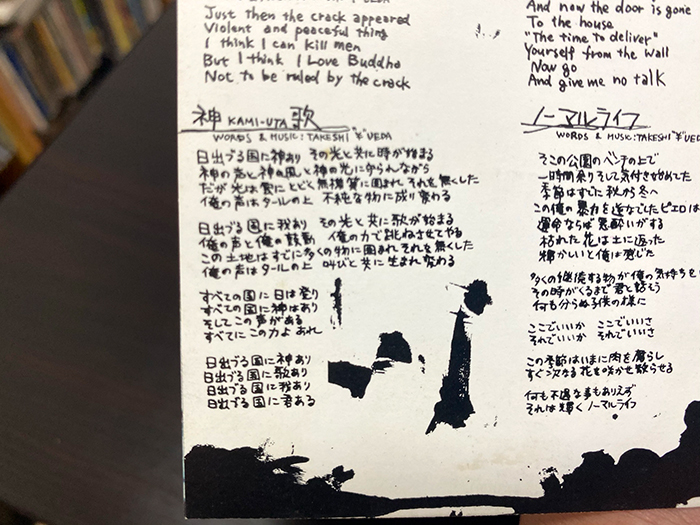 Just then the crack appeared
Violent and peaceful thing
I think I can kill men
But I think I Love Buddha
Not to be ruled by the crack
神 KAMI-UTA 歌
WORDS & MUSIC: TAKESHI "¥" UEDA
日出づる国に神あり その光と共に時が始まる
神の声と神の風と神の光に守られながら
だが光は雲にとどく無機質に囲まれ それを無くした
俺の声はタールの上 不純な物に成り変わる
日出づる国に我あり その光と共に歌が始まる
俺の声と俺の鼓動 俺の力で跳ねさせてやる
この土地はすでに多くの物に囲まれそれを無くした
俺の声はタールの上 叫びと共に生まれ変わる
すべての国に日は登り
すべての国に神はあり
そしてこの声がある
すべてにこの力よ あれ
日出づる国に神あり
日出づる国に歌あり
日出づる国に我あり
日出づる国に君ある
And now the door is gone
To the house
"The time to deliver"
Yourself from the wall
Now go
And give me no talk
ノーマルライフ
WORDS & MUSIC: TAKESHI "¥" UED
そこの公園のベンチの上で
一時間余りそして気付き始めてた
季節はすでに秋から冬へ
この俺の暴力を逆なでしたピエロは
運命ならば悪酔いがする
枯れた花は土に返った
輝かしいと俺は感じた
多くの 物が俺の気持ちを
その時がくるまで君と話そう
何も分らぬ子供の様に
ここでいいか ここでいいさ
それでいいか それでいいさ
この季節はいまに肉を腐らし
すぐ次なる花を咲かせ散らせる
何も不遇な事もありえず
それは輝く ノーマルライフ